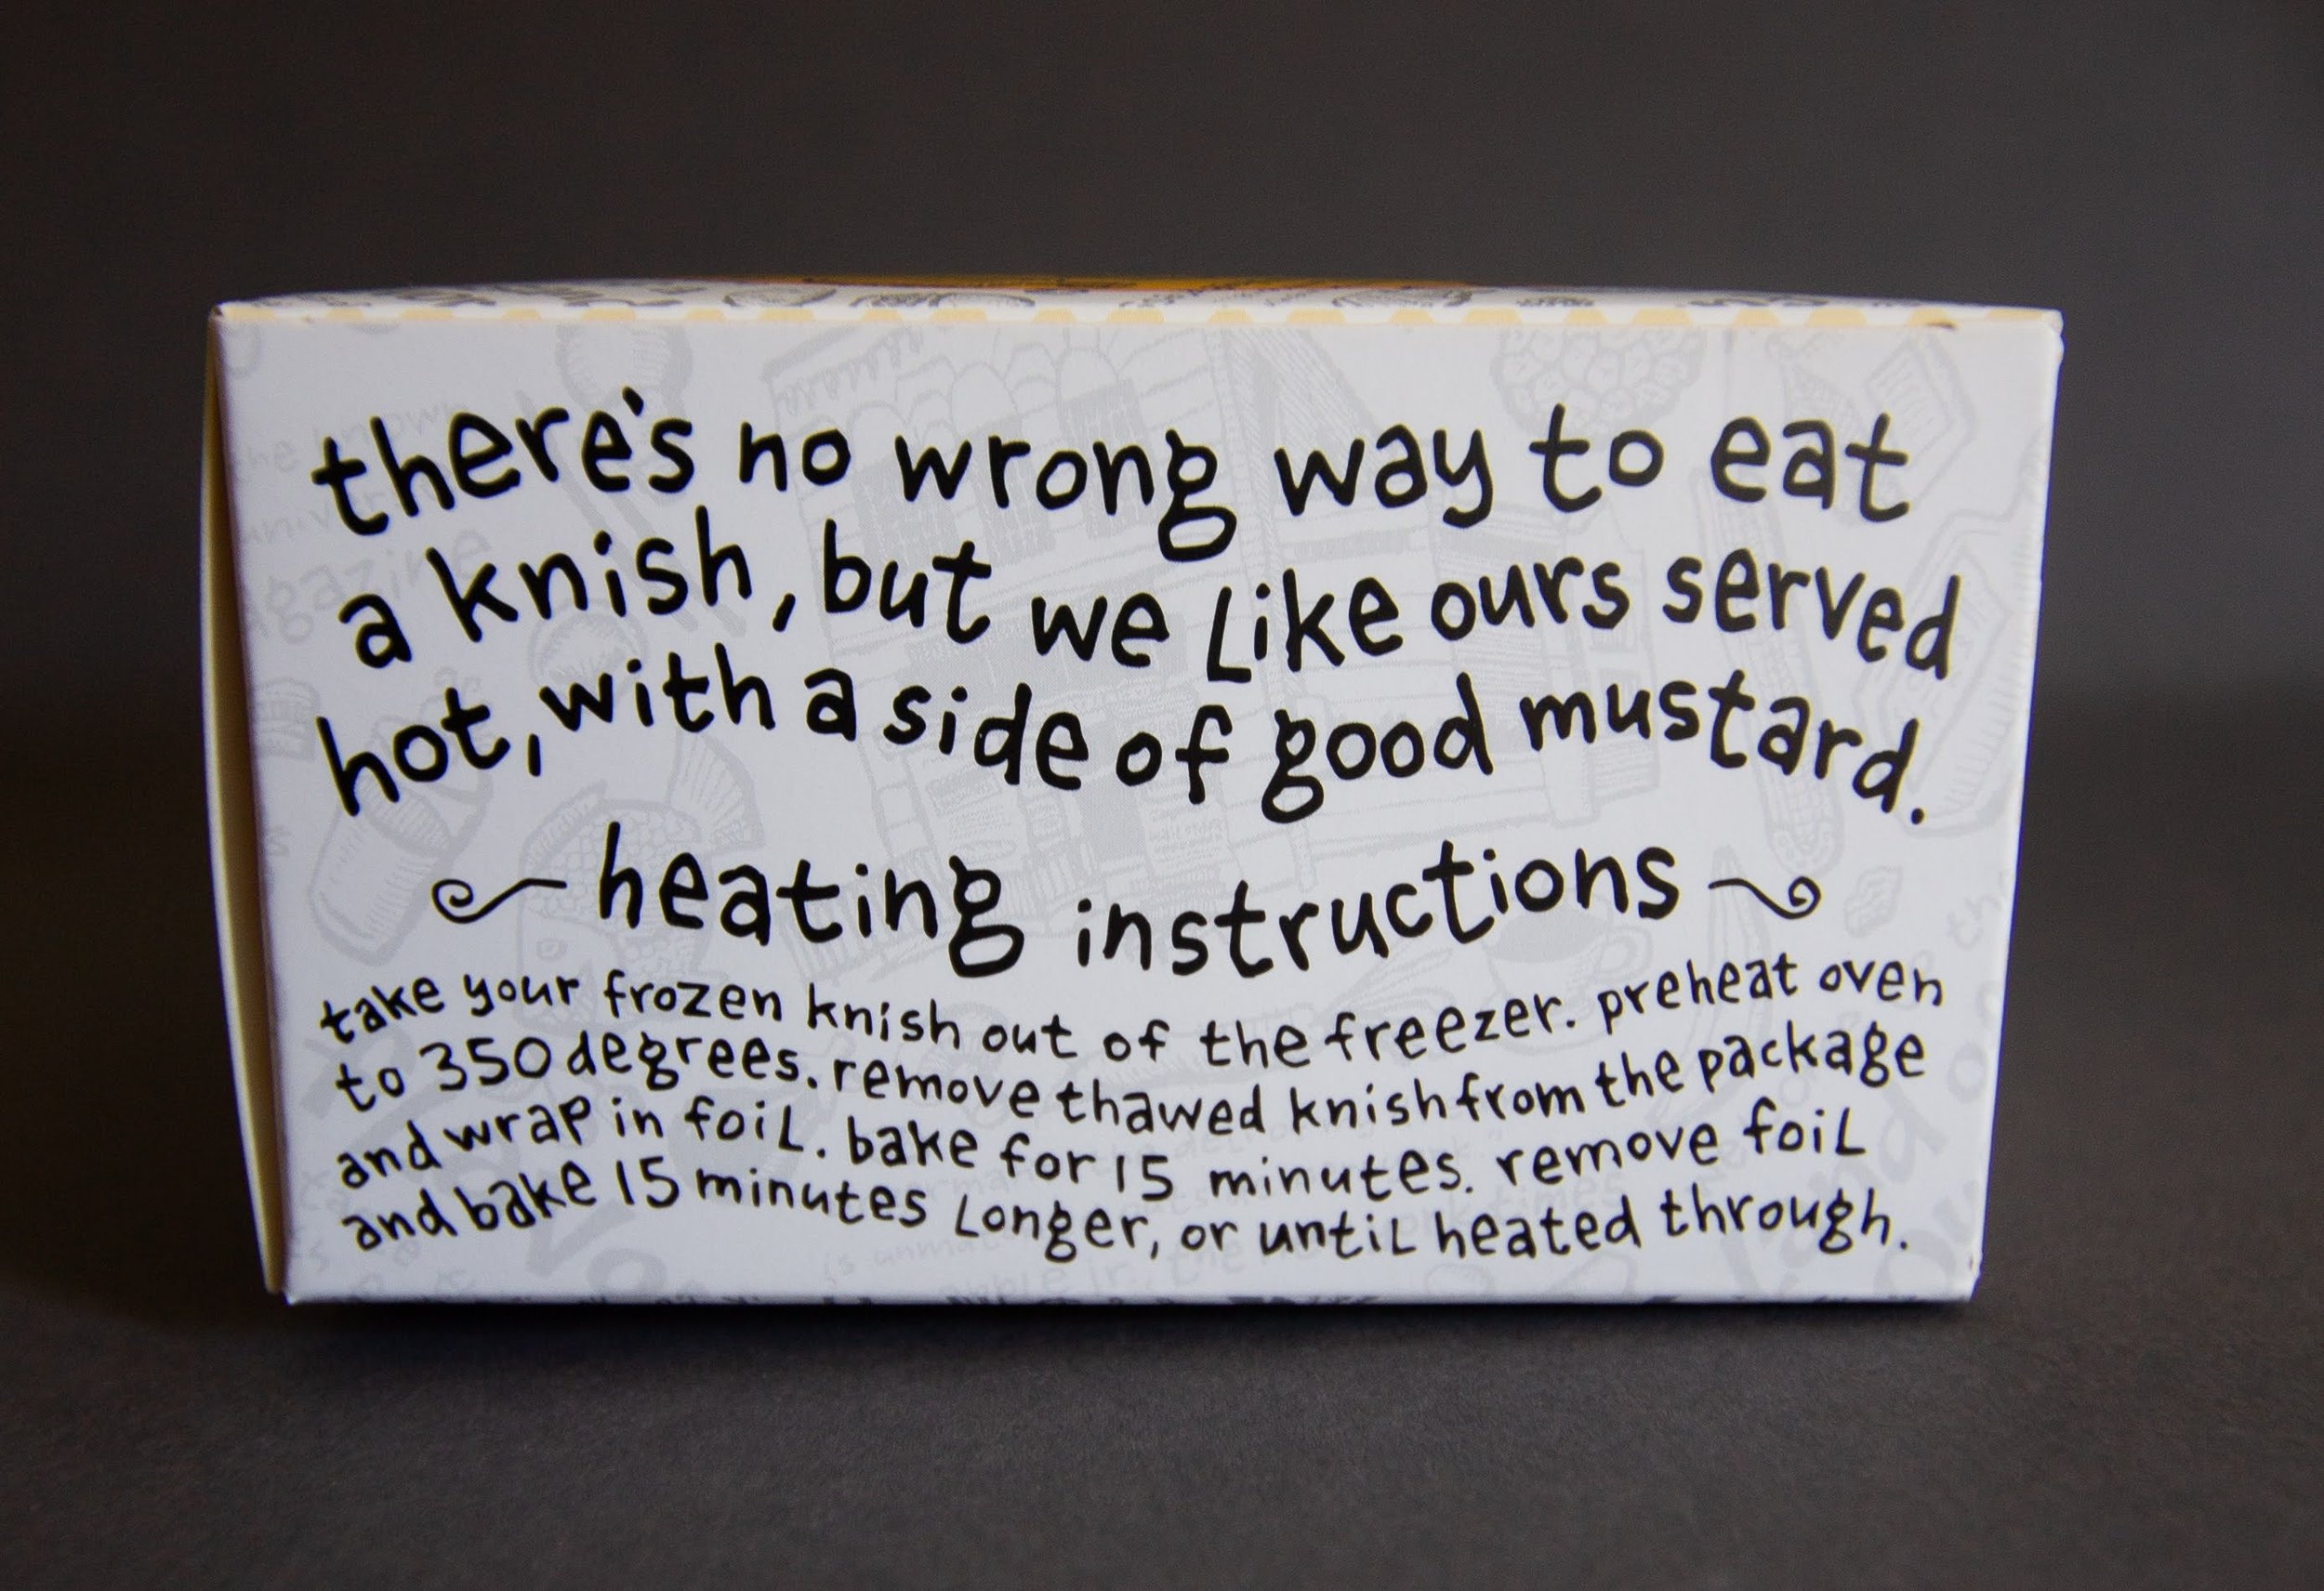 there's no wrong way to eat
a knish, but we like ours served
hot, with a side of good mustard.
heating instructions
take your frozen knish out of the freezer. preheat oven
to 350 degrees. remove thawed knish from the package
and wrap in foil. bake for 15 minutes. remove foil
and bake 15 minutes longer, or until heated through.